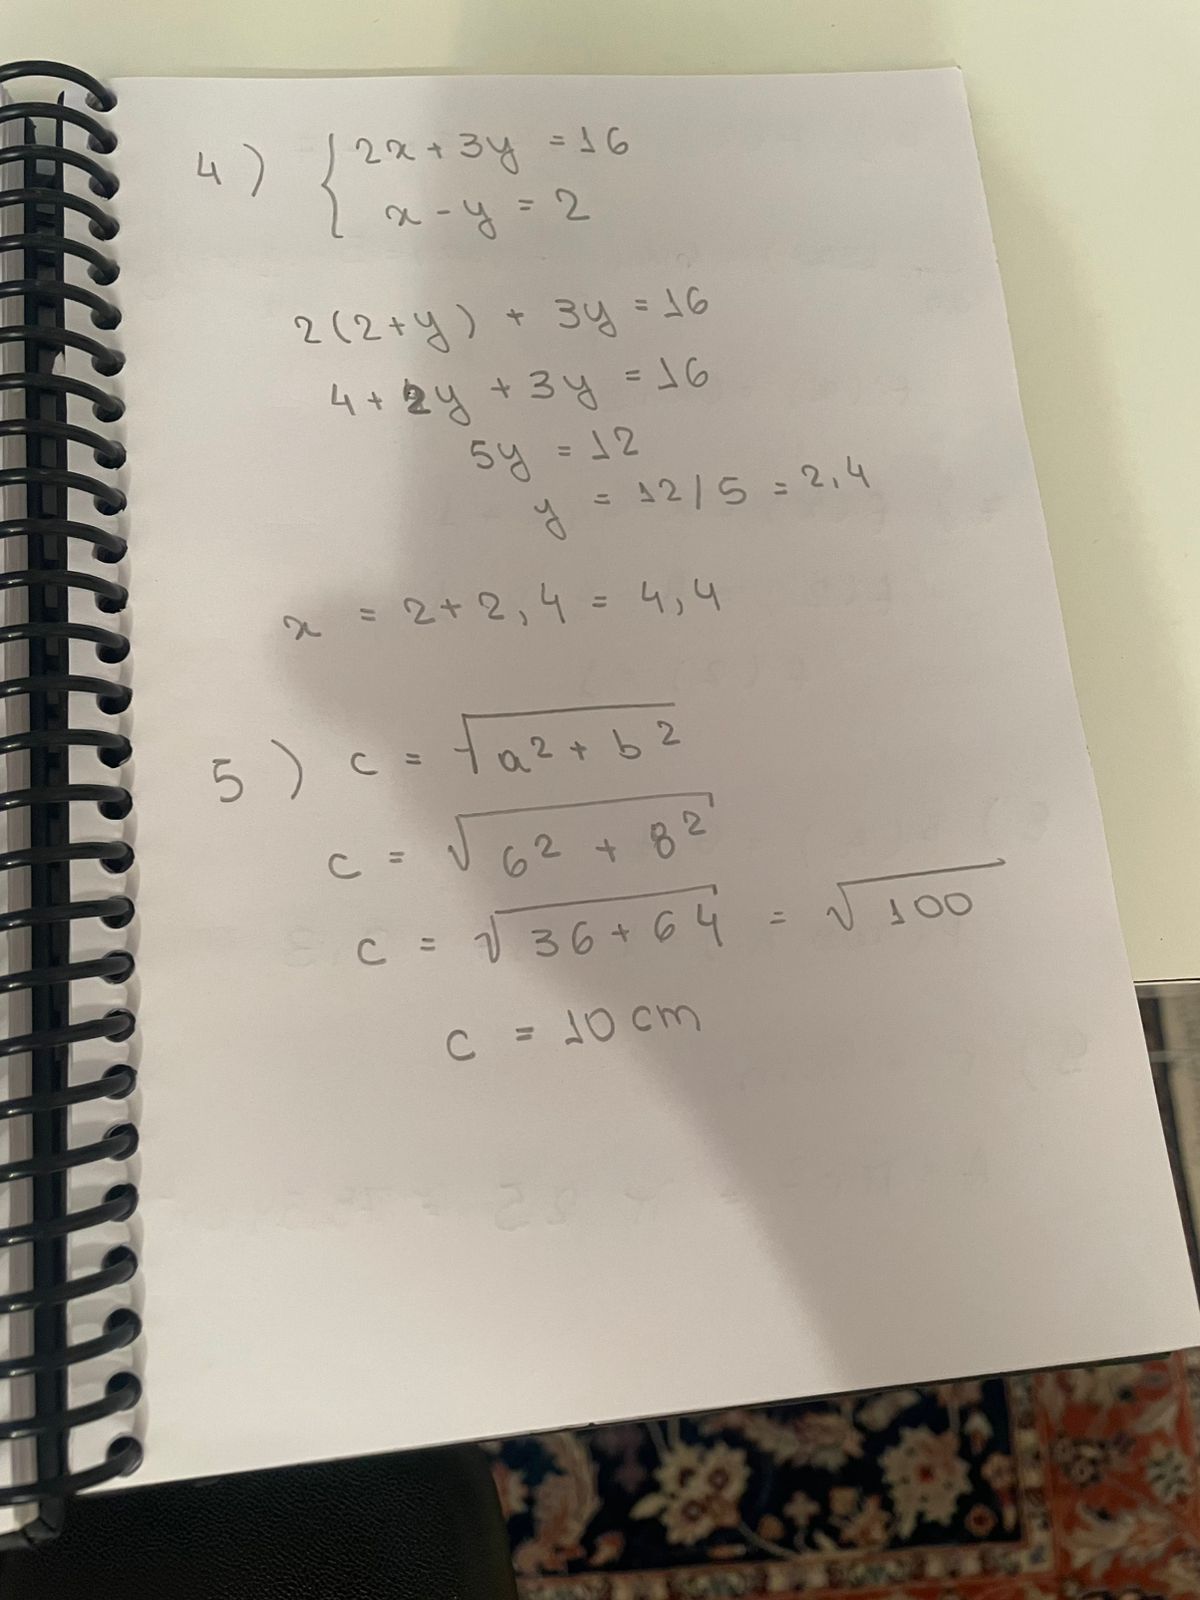 4) { 2x + 3y = 16
x - y = 2
2(2+y) + 3y = 16
4 + 2y + 3y = 16
5y = 12
y = 12/5 = 2,4
x = 2 + 2,4 = 4,4
5) c = √a² + b²
c = √6² + 8²
c = √36 + 64 = √100
c = 10 cm